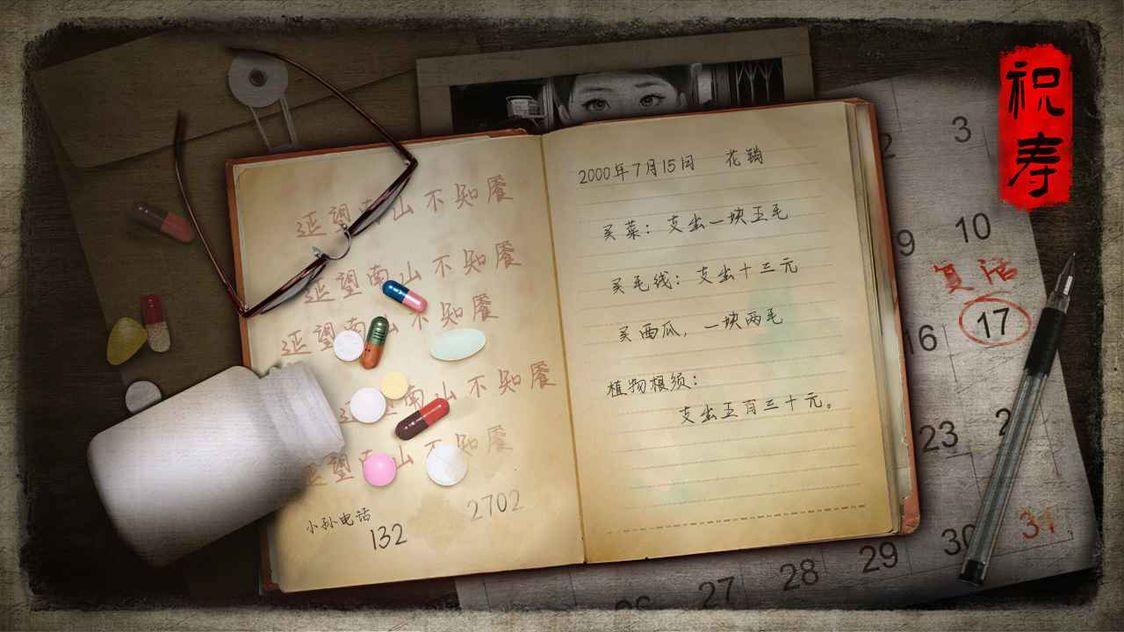 祝
寿
望南山不知
望南山不知
望南山不知
望南山不知
望南山不知
小孙电话
132
2702
2000年7月15日 花销
买菜：支出一块五毛
买毛线：支出十三元
买西瓜，一块两毛
植物根须：
支出五百三十元。
2 3
9 10
复活
16 17
23 2
27 28 29 30 31